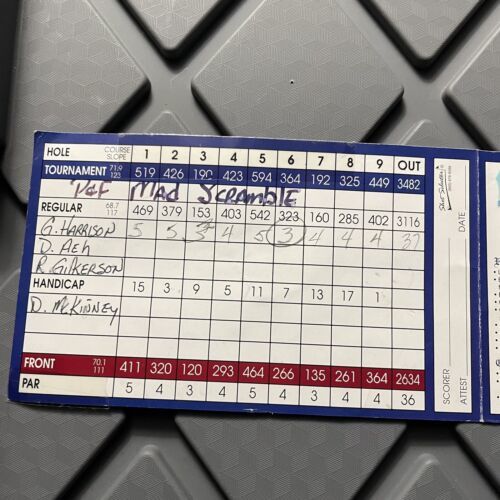 HOLE COURSE SLOPE 1 2 3 4 5 6 7 8 9 OUT
TOURNAMENT 71.9 123 519 426 190 423 594 364 192 325 449 3482
MAD SCRAMBLE
REGULAR 68.7 117 469 379 153 403 542 323 160 285 402 3116
G. HARRISON 5 5 3 4 5 3 4 4 4 37
D. AEH
R. GILKERSON
HANDICAP 15 3 9 5 11 7 13 17 1
D. McKINNEY
FRONT 70.1 111 411 320 120 293 464 266 135 261 364 2634
PAR 5 4 3 4 5 4 3 4 4 36
DATE
SCORER
ATTEST